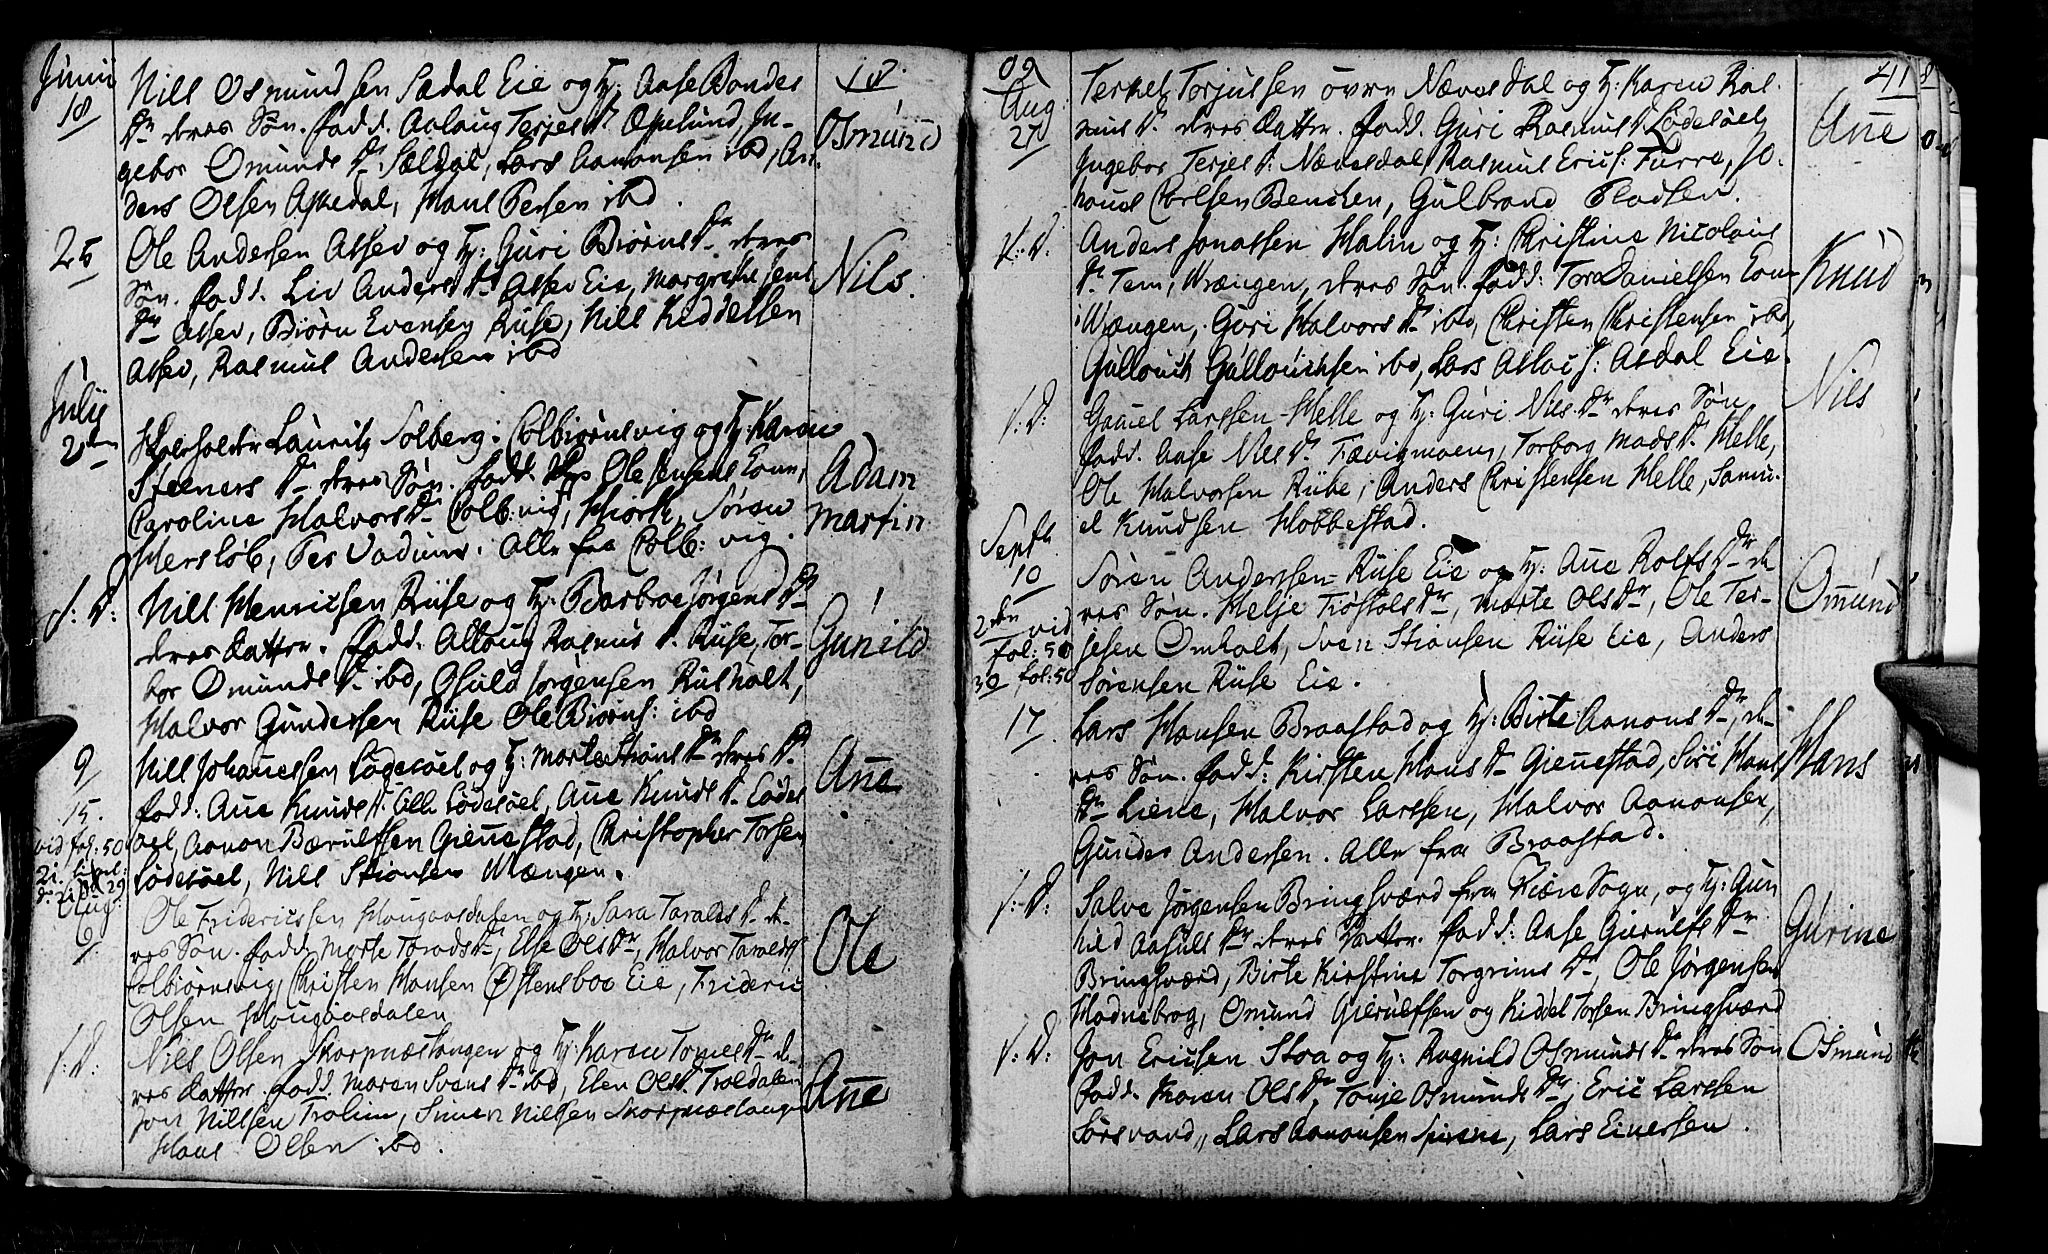 Junii
18
Nills Osmundsen Sædal Eie og H: Aase Bondes
Dr deres Søn. fadd. Aslaug Terjes Dr Øpelund, In-
gebor Omunds Dr Sældal, Lars Aanonsen ibd, An-
ders Olsen Askedal, Hans Persen ibd.
18.
Osmund
25
Ole Andersen Assev og H: Guri Biørns Dr deres
Søn. fadd. Liv Anders Dr Assev Eie, Margrethe Jens
Dr Assev, Biørn Evensen Riise, Nills Kiddelsen
Assev, Rasmus Andersen ibd
Nils.
Julij
2den
Lauritz Solberg: Colbiørnsvig og H: Karen
Steeners Dr deres Søn. fadd. Ole Jensens Kone,
Caroline Halvors Dr Colb:vig, Hiorth, Søren
Hersløb, Per Vadum. Alle fra Colb: vig.
Adam
Martin
S: D:
Nills Henricsen Riise og H: Barbroe Jørgens Dr
deres Datter. fadd. Asloug Rasmus D. Riise, Tor-
bor Omunds Dr ibd, Osuld Jørgensen Riisholt,
Halvor Gundersen Riise Ole Biørns: ibd
Gunild
9
Nills Johannessen Lødesøel og H: Marte Stians Dr deres Dr
fadd: Anne Knuds Dr Lødesøel, Anne Knuds Dr Lødes
øel, Aanon Bærulfsen Giennestad, Christopher Torsen
Lødesøel, Nills Stionsen Wrængen.
Anne
15.
vid fol: 50
Aug:
6
Ole Fridericssen Hougaasdalen og H: Sara Taralds Dr de-
res Søn. fadd: Marte Taralds Dr, Else Ols Dr, Halvor Taraldsen
Colbiørnsvig, Christen Hansen Østensboe Eie, Frideric
Olsen Hougaasdalen
Ole
S: D:
Nils Olsen Skarpnæstangen og H: Karen Tomes Dr de-
res Datter. fadd. Maren Svens Dr ibd, Elen Ols D. Troldalen
Jon Nillsen Trolim, Simen Nilsen Skarpnæstangen
Hans Olsen ibd.
Anne
09
41
Aug:
27
Terkel Torjussen øvre Nævesdal og H: Karen Ras-
mus Dr deres Datter. fadd. Guri Rasmus D. Lødesøel,
Ingebor Terjes D. Nævesdal, Rasmus Erics: Furre, Jo-
hannes Carlsen Benchen, Gulbrand Pladsen.
Anne
S: D:
Anders Jonassen Malin og H: Christine Nicolaus
Dr Tem, Wrængen, deres Søn. fadd: Tore Danielsen Kone
Wrængen, Guri Halvors Dr ibd, Christen Christensen ibd,
Gullouch Gullouchsen ibd, Lars Aslacs: Asdal Eie.
Knud
S: D:
Gamel Larssen Helle og H: Guri Nils Dr deres Søn
fadd. Aase Nils Dr Fævigmoen, Torborg Mads D. Helle,
Ole Halvorsen Riise, Anders Christensen Helle, Samu-
el Knudsen Hobbestad.
Nils
Septb
10
Søren Anderssen Riise Eie og H: Anne Rolfs Dr de
res Søn. Helje Trøstols Dr, Marte Ols Dr, Ole Ter-
jesen Omholt, Sven Stiansen Riise Eie, Anders
Sørensen Riise Eie.
Omund
2den vid
fol: 50
30 fol: 50
17
Lars Hansen Braastad og H: Birte Aanons Dr, de-
res Søn. fadd: Kirsten Hans Dr Giennestad, Siri Hans
Dr Liene, Halvor Larssen, Halvor Aanonsen,
Gunder Andersen. Alle fra Braastad.
Hans
S: D:
Salve Jørgensen Bringsværd fra Fiære Sogn, og H: Gun
hild Aasuls Dr deres Datter. fadd: Aase Gierulfs Dr
Bringsværd, Birte Kirstine Torgrims Dr, Ole Jørgensen
Hadnebrog, Omund Gierulfsen og Kiddel Torsen Bringsværd
Gurine
S: D:
Jon Ericsen Stoa og H: Ragnild Osmunds Dr deres Søn
fadd. Karen Ols Dr, Tonje Osmunds Dr, Eric Larssen
Sørsvand, Lars Aanonsen Spirene, Lars Einersen.
Osmund